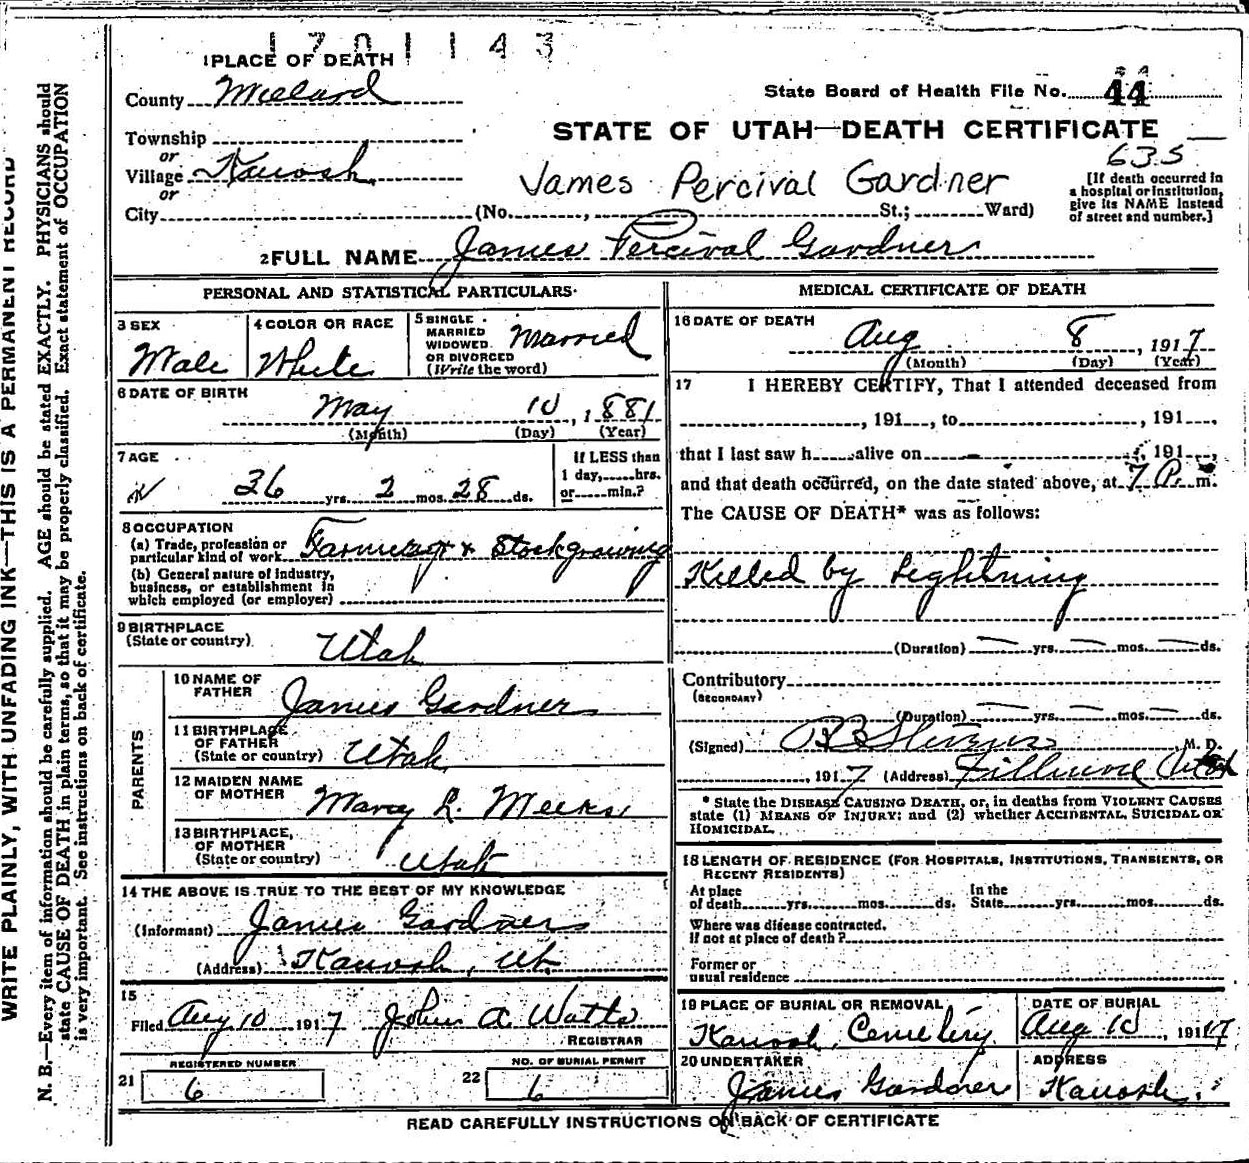 1701143
1 PLACE OF DEATH
County Millard
State Board of Health File No. 44
Township
STATE OF UTAH—DEATH CERTIFICATE
or
Village Kanosh
635
or
James Percival Gardner
[If death occurred in
a hospital or institution,
give its NAME instead
of street and number.]
City (No. , St.; Ward)
2 FULL NAME James Percival Gardner
PERSONAL AND STATISTICAL PARTICULARS
3 SEX
Male
4 COLOR OR RACE
White
5 SINGLE
MARRIED
WIDOWED
OR DIVORCED
(Write the word)
Married
6 DATE OF BIRTH
May 10, 1881
(Month) (Day) (Year)
7 AGE
36 yrs. 2 mos. 28 ds.
If LESS than
1 day, hrs.
or min.?
8 OCCUPATION
(a) Trade, profession or
particular kind of work Farming & Stockgrowing
(b) General nature of industry,
business, or establishment in
which employed (or employer)
9 BIRTHPLACE
(State or country)
Utah
PARENTS
10 NAME OF
FATHER
James Gardner
11 BIRTHPLACE
OF FATHER
(State or country) Utah
12 MAIDEN NAME
OF MOTHER
Marcy L. Meeks
13 BIRTHPLACE,
OF MOTHER
(State or country) Utah
14 THE ABOVE IS TRUE TO THE BEST OF MY KNOWLEDGE
(Informant) James Gardner
(Address) Kanosh, Ut.
15
Filed Aug 10 1917 John A Watts
REGISTRAR
REGISTERED NUMBER
21 6
NO. OF BURIAL PERMIT
22 6
MEDICAL CERTIFICATE OF DEATH
16 DATE OF DEATH
Aug 8, 1917
(Month) (Day) (Year)
17 I HEREBY CERTIFY, That I attended deceased from
, 191 , to , 191 ,
that I last saw h alive on , 191 ,
and that death occurred, on the date stated above, at 7 P. m.
The CAUSE OF DEATH* was as follows:
Killed by Lightning
(Duration) yrs. mos. ds.
Contributory
(SECONDARY)
(Duration) yrs. mos. ds.
(Signed) M. D.
, 1917 (Address) Fillmore Utah
* State the DISEASE CAUSING DEATH, or, in deaths from VIOLENT CAUSES
state (1) MEANS OF INJURY; and (2) whether ACCIDENTAL, SUICIDAL OR
HOMICIDAL.
18 LENGTH OF RESIDENCE (FOR HOSPITALS, INSTITUTIONS, TRANSIENTS, OR
RECENT RESIDENTS)
At place
of death yrs. mos. ds.
In the
State yrs. mos. ds.
Where was disease contracted,
if not at place of death?
Former or
usual residence
19 PLACE OF BURIAL OR REMOVAL
Kanosh Cemetery
DATE OF BURIAL
Aug 10, 1917
20 UNDERTAKER
James Gardner
ADDRESS
Kanosh.
READ CAREFULLY INSTRUCTIONS ON BACK OF CERTIFICATE
WRITE PLAINLY, WITH UNFADING INK—THIS IS A PERMANENT RECORD
N. B.—Every item of information should be carefully supplied. AGE should be stated EXACTLY. PHYSICIANS should
state CAUSE OF DEATH in plain terms, so that it may be properly classified. Exact statement of OCCUPATION
is very important. See instructions on back of certificate.